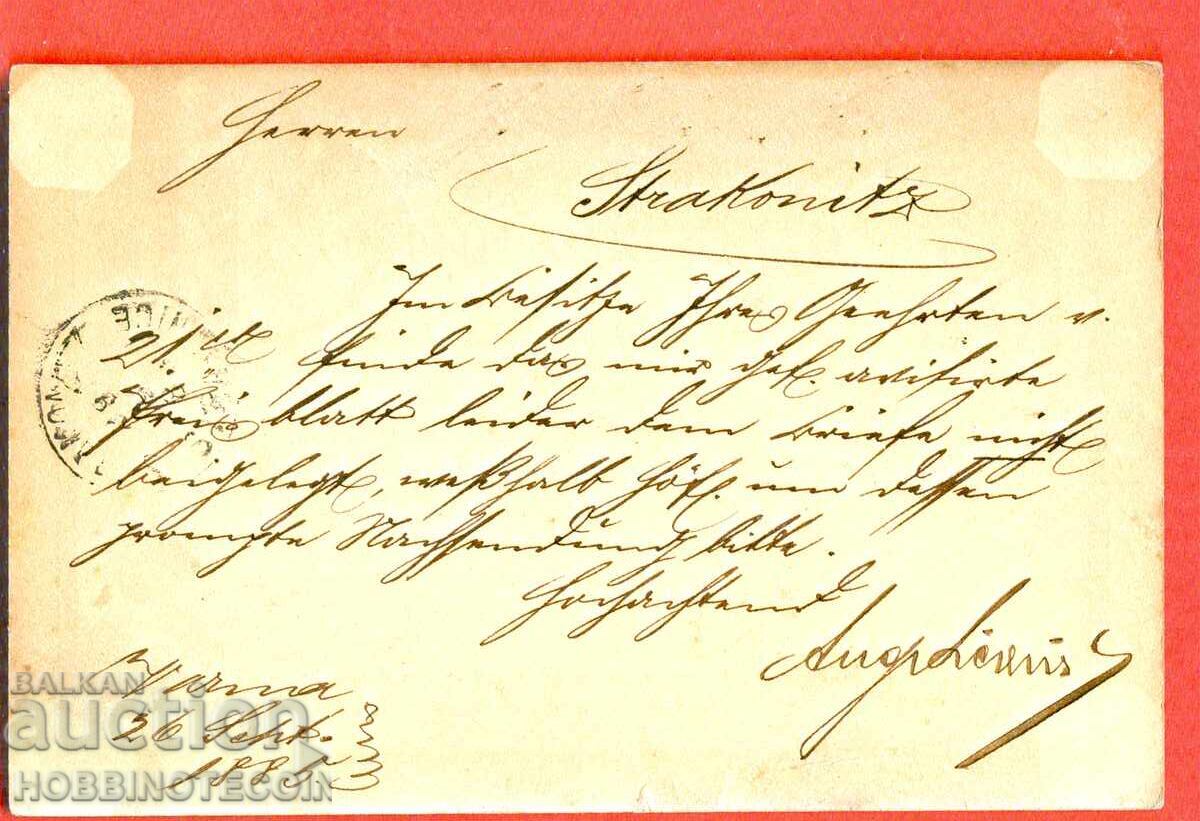 Herren
Strakonitz
Im Besitze Ihres Geehrten v.
21. ds finde das mir gef. avisirte
Preisblatt leider dem Briefe nicht
beigelegt, weßhalb höfl. um dessen
prompte Nachsendung bitte.
Hochachtend
Aug.
Varna
26 Sept.
1885
BALKAN
auction
HOBBINOTECOIN